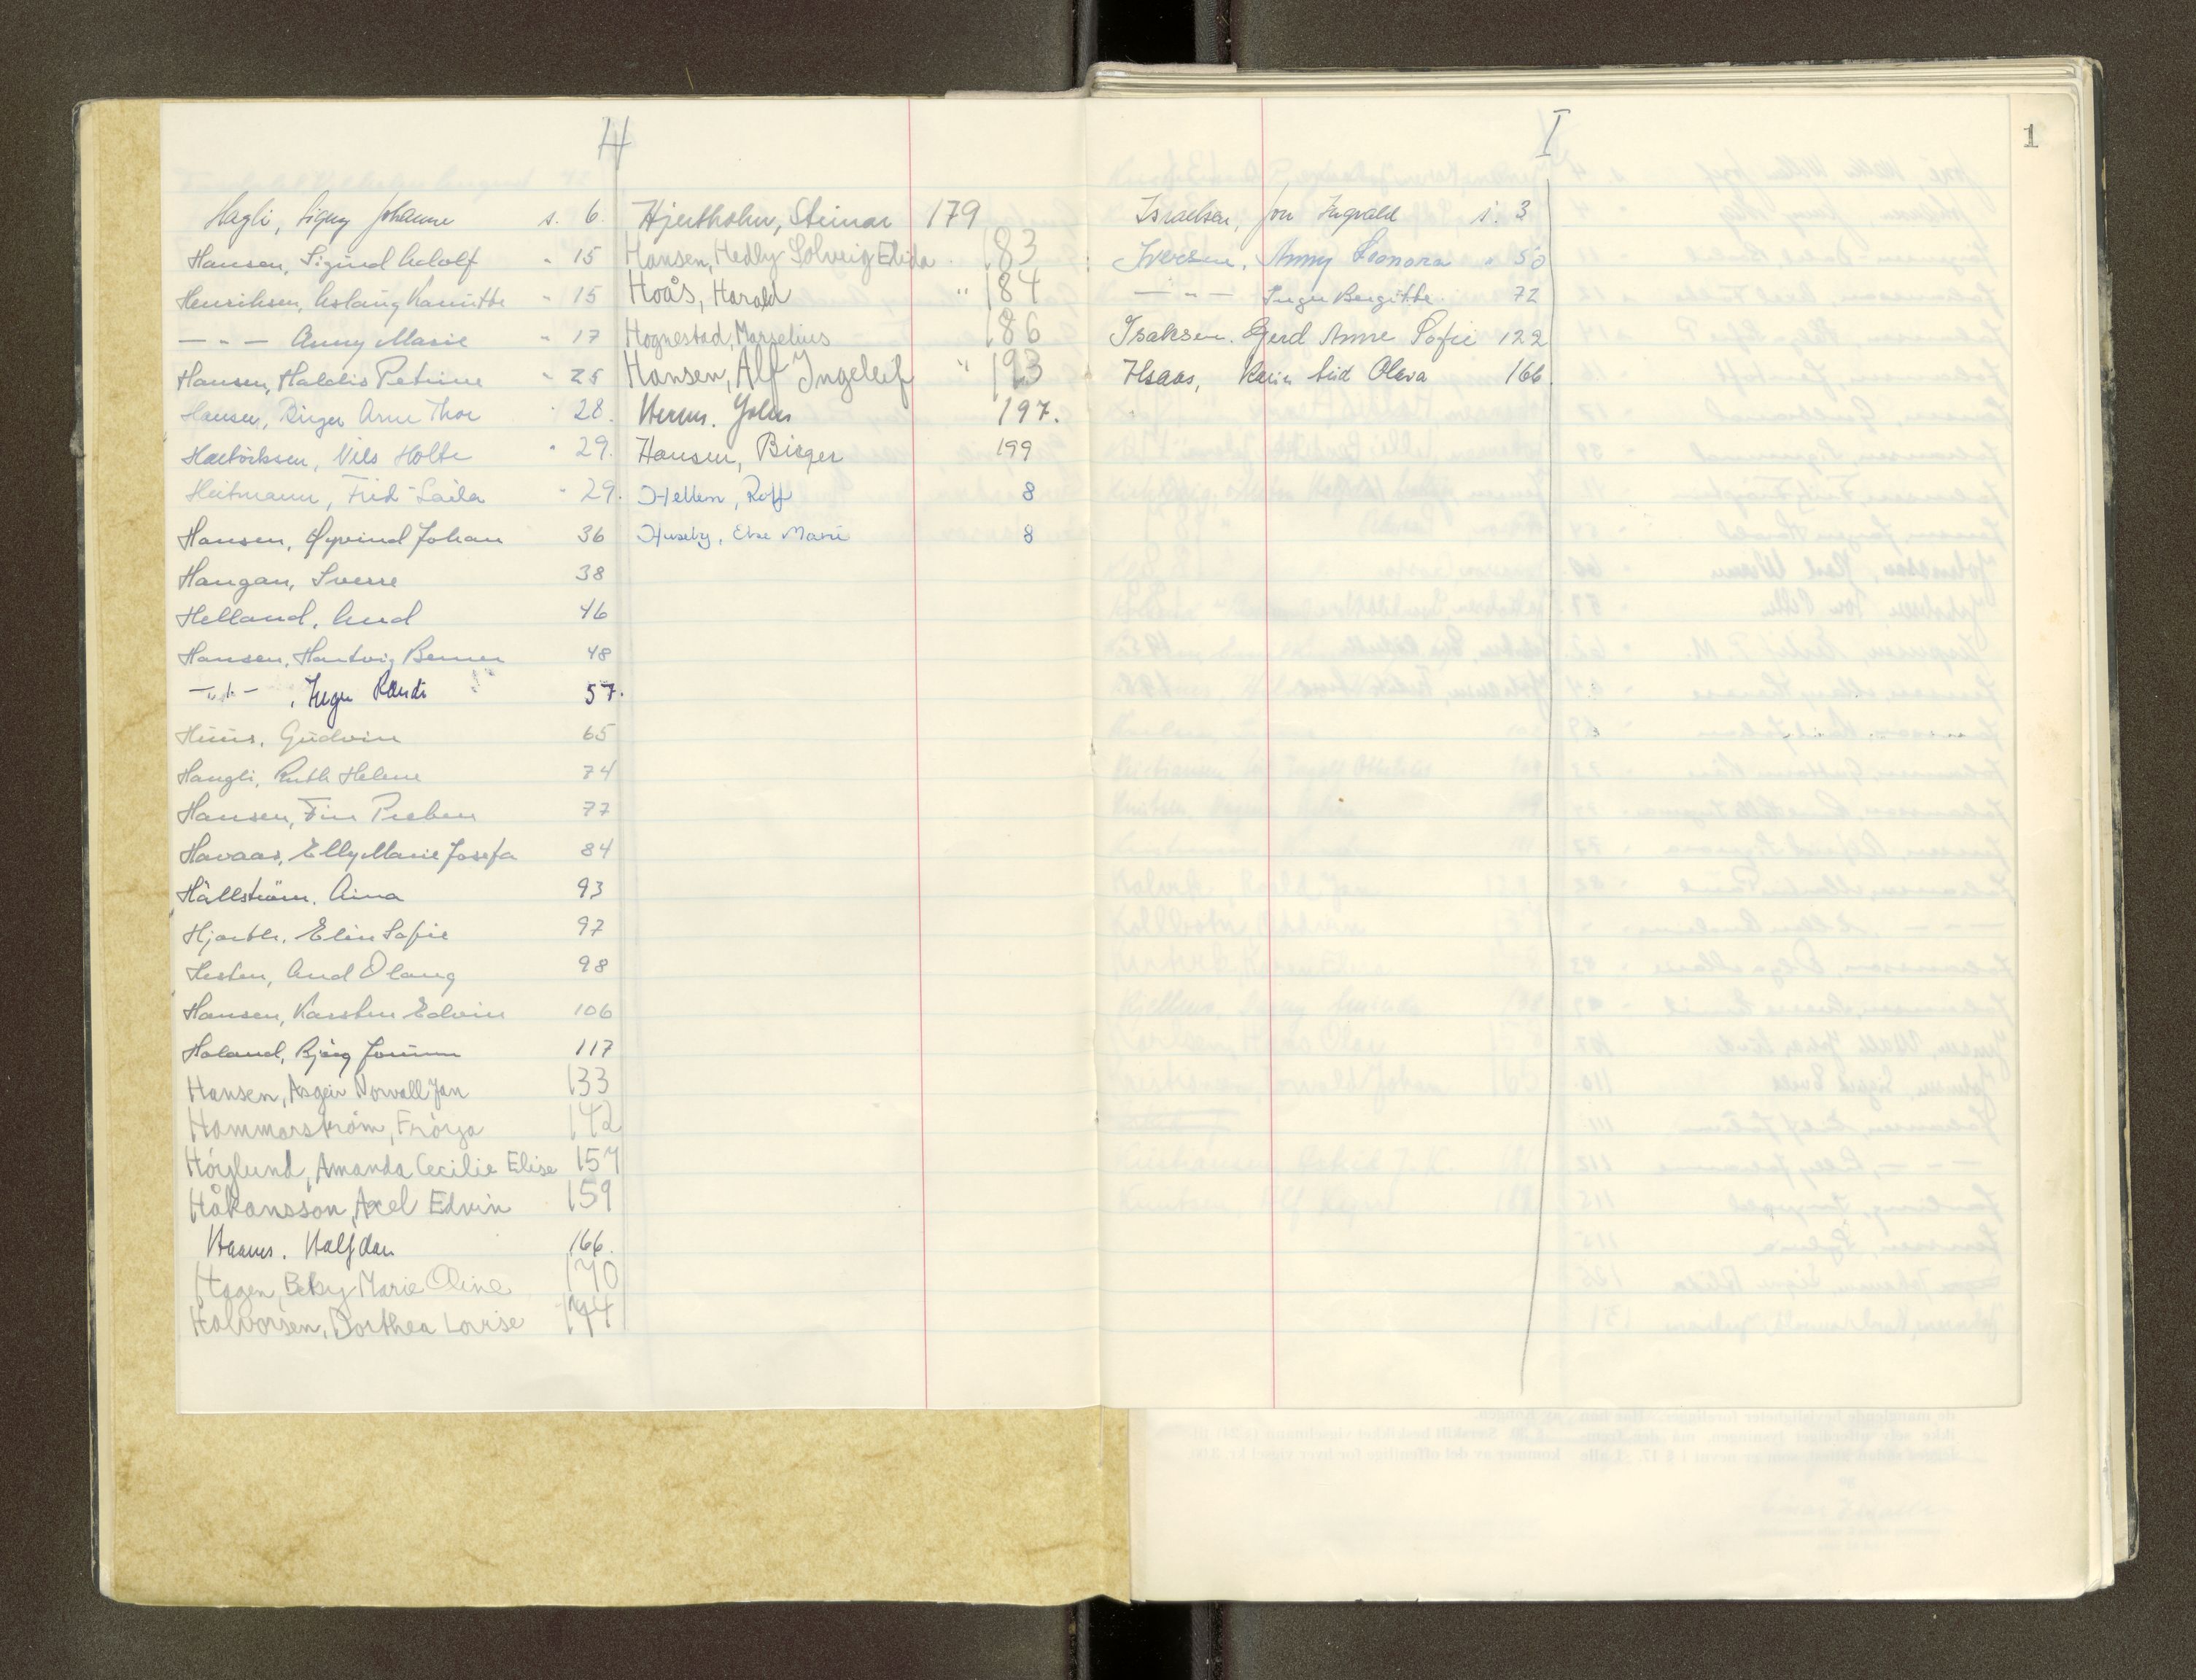 H
Hagli, Signy Johanne s. 6.
Hansen, Sigurd Adolf " 15
Henriksen, Aslaug Kamitte " 15
— " — Anny Marie " 17
Hansen, Haldis Petrine " 25
Hansen, Birger Arne Thor " 28.
Nils Holte " 29.
Heitmann, Frid-Laila " 29.
Hansen, Øyvind Johan 36
Haugan, Sverre 38
Helland, Aud 46
Hansen, Hartvig Berner 48
— " — , Inger Randi 57.
Huus, Gudvin 65
Haugli, Ruth Helene 74
Hansen, Finn Preben 77
Havaas, Elly Marie Josefa 84
Hällström, Aina 93
Hjorth, Elin Sofie 97
Hesten, Aud Olaug 98
Hansen, Karsten Edvin 106
Holand, Bjørg Jorunn 117
Hansen, Asgeir Norvall Jan 133
Hammarström, Fröyja 142
Höglund, Amanda Cecilie Elise 157
Håkansson, Axel Edvin 159
Halfdan 166.
Hagen, Betsy Marie Oline 170
Halvorsen, Dorthea Lovise 174
Hjertholm, Steinar 179
Hansen, Hedly Solveig Elida 183
Hoås, Harald " 184
Hognestad, Marselius 186
Hansen, Alf Ingeleif " 193
John 197.
Hansen, Birger 199
Hellem, Rolf 8
Huseby, Else Marie 8
I
1
Israelsen, Jon Ingvald s. 3
Iversen, Anny Leonora " 50
— " — Inger Bergitte. 72
Isaksen. Gerd Anne Sofie 122
Karin Olava 166.